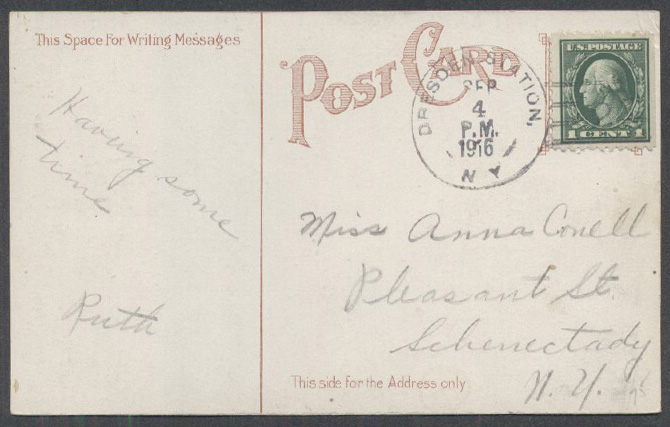 This Space For Writing Messages
POST CARD
DRESDEN STATION,
SEP
4
P.M.
1916
N Y
U.S. POSTAGE
1 CENT 1
Having some
time
Ruth
Miss Anna Conell
Pleasant St.
Schenectady
N. Y.
This side for the Address only